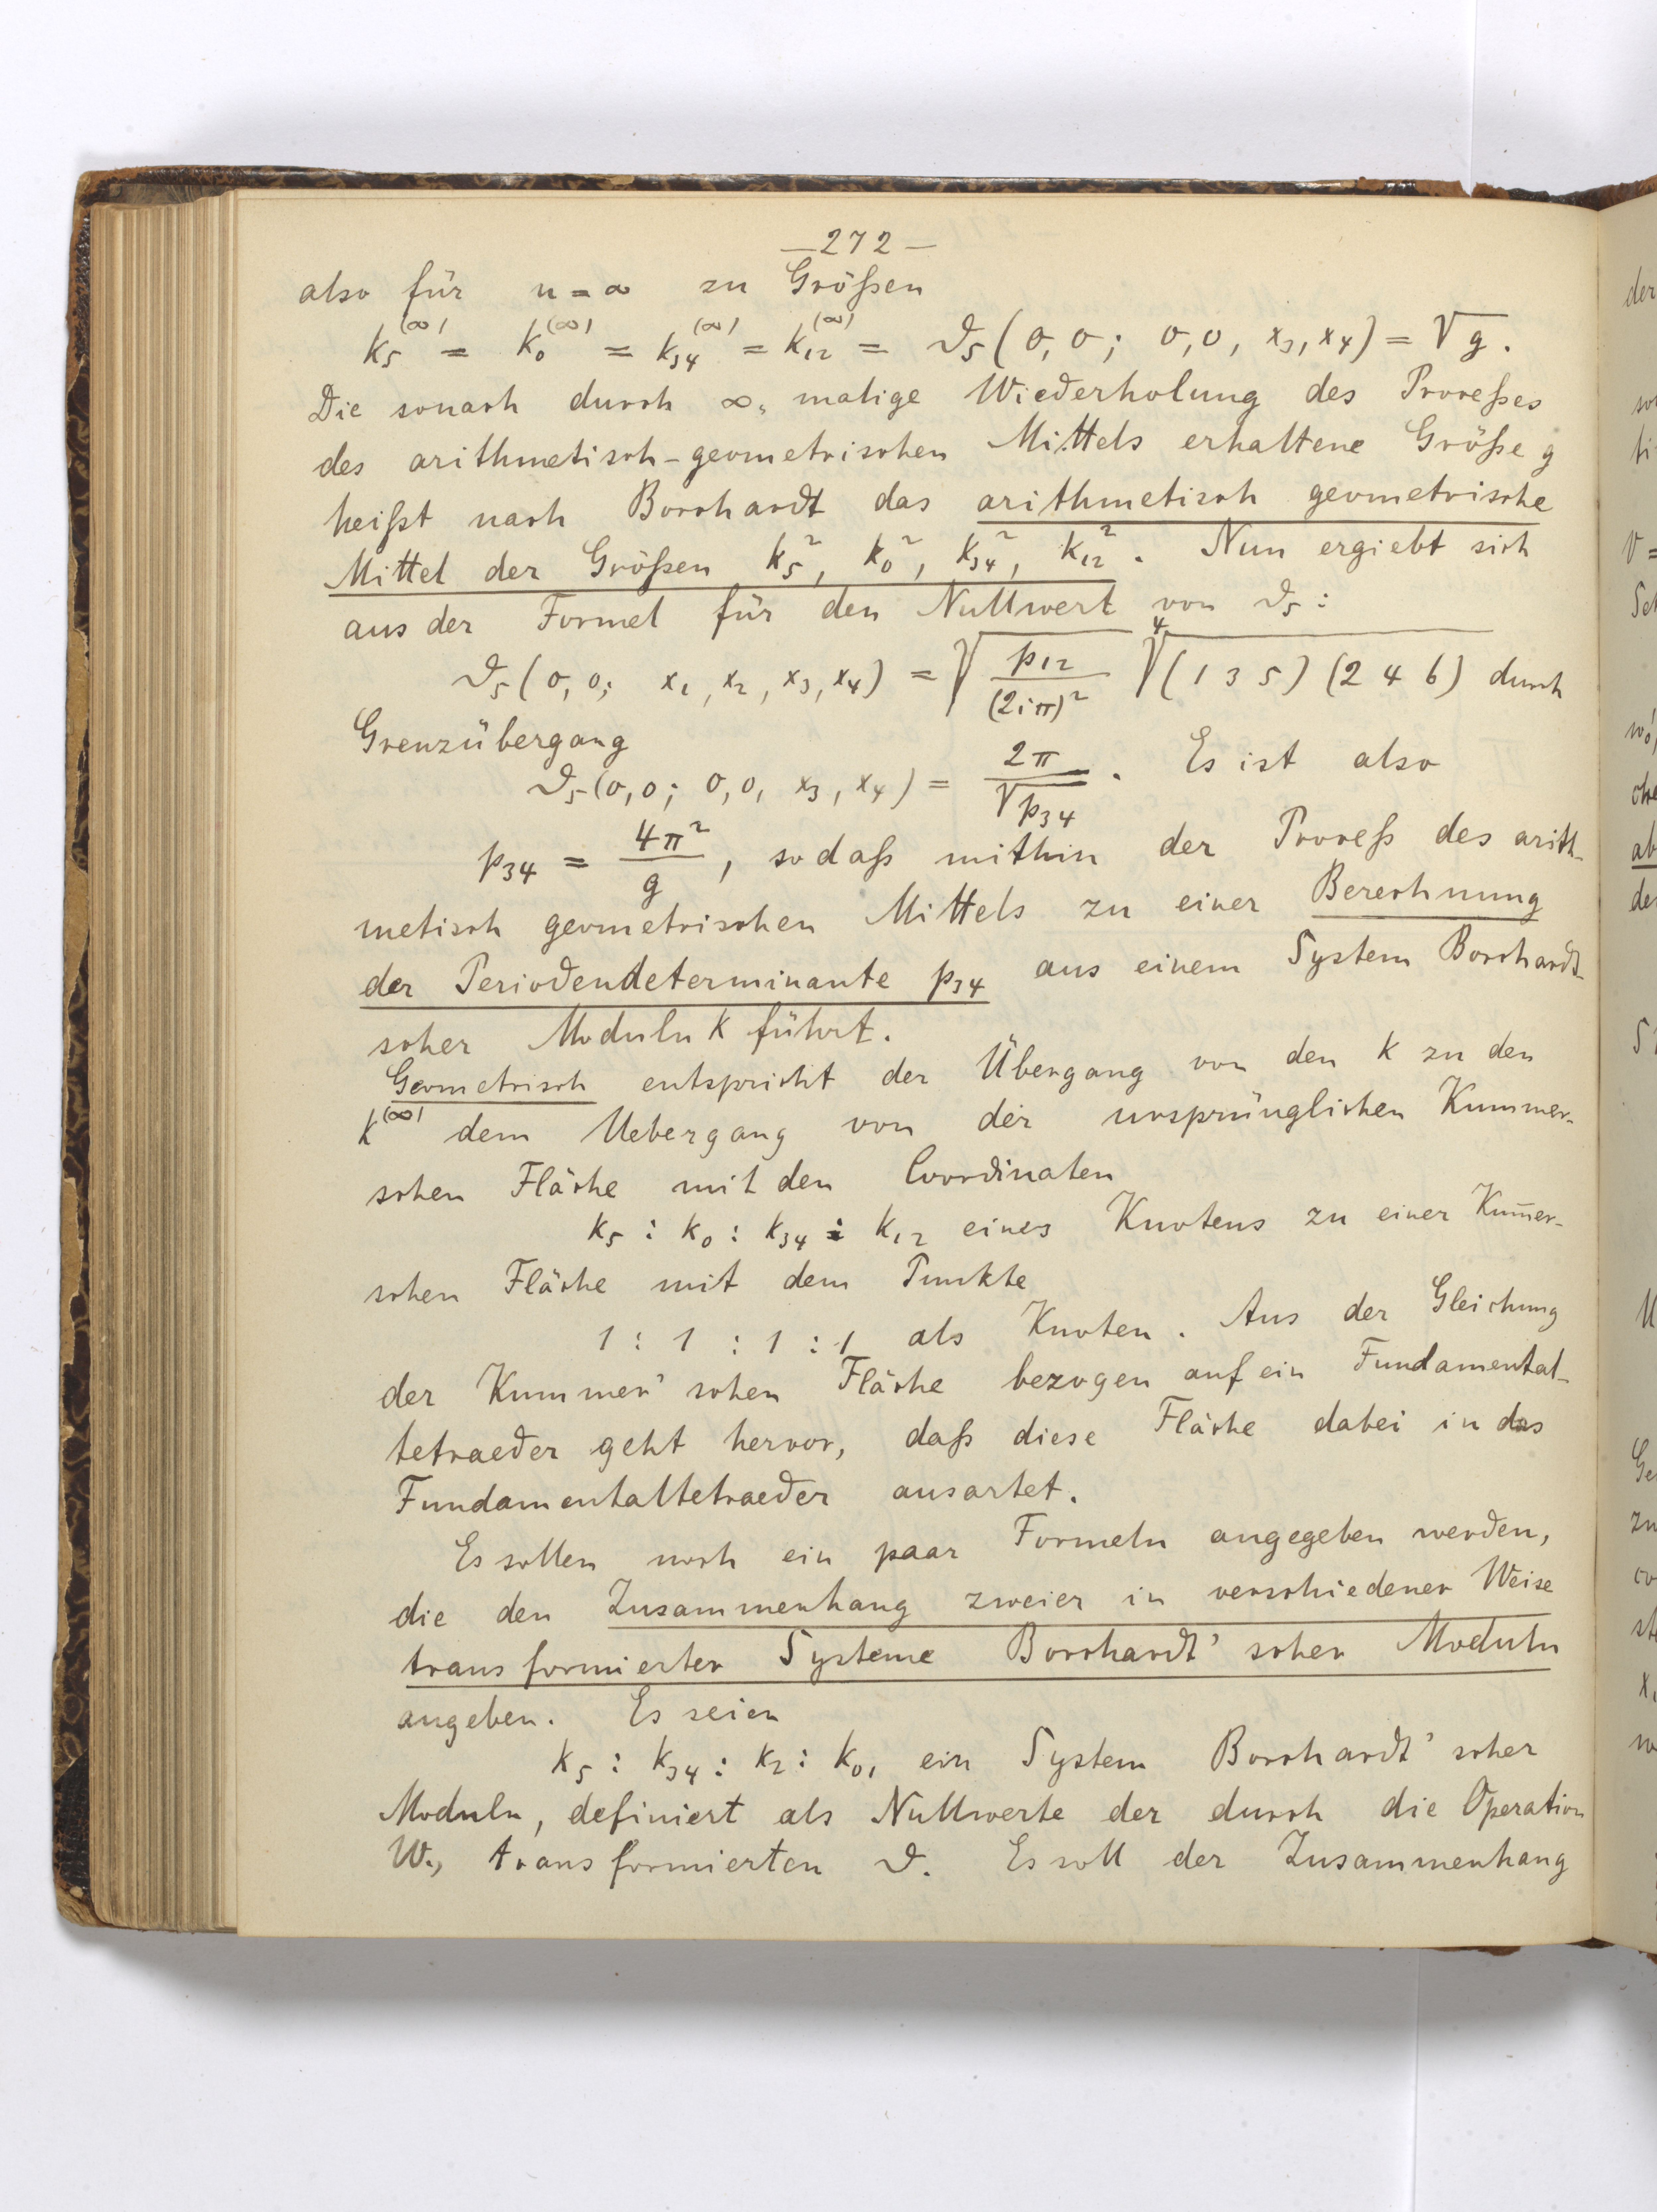 — 272 —
also für n = ∞ zu Größen
k₅^(∞) = k₀^(∞) = k₃₄^(∞) = k₁₂^(∞) = ϑ₅(0,0; 0,0, x₃, x₄) = √g.
Die sonach durch ∞ malige Wiederholung des Proceßes
des arithmetisch-geometrischen Mittels erhaltene Größe g
heißt nach Borchardt das arithmetisch geometrische
Mittel der Größen k₅², k₀², k₃₄², k₁₂². Nun ergiebt sich
aus der Formel für den Nullwert von ϑ₅:
ϑ₅(0,0; x₁, x₂, x₃, x₄) = √(p₁₂/(2iπ)²) ⁴√((1 3 5)(2 4 6)) durch
Grenzübergang
ϑ₅(0,0; 0,0, x₃, x₄) = 2π/√p₃₄. Es ist also
p₃₄ = 4π²/g, sodaß mithin der Proceß des arith-
metisch geometrischen Mittels zu einer Berechnung
der Periodendeterminante p₃₄ aus einem System Borchardt-
scher Moduln k führt.
Geometrisch entspricht der Übergang von den k zu den
k^(∞) dem Uebergang von der ursprünglichen Kummer-
schen Fläche mit den Coordinaten
k₅ : k₀ : k₃₄ : k₁₂ eines Knotens zu einer Kum̄er-
schen Fläche mit dem Punkte
1 : 1 : 1 : 1 als Knoten. Aus der Gleichung
der Kummer'schen Fläche bezogen auf ein Fundamental-
tetraeder geht hervor, daß diese Fläche dabei in das
Fundamentaltetraeder ausartet.
Es sollen noch ein paar Formeln angegeben werden,
die den Zusammenhang zweier in verschiedener Weise
transformierter Systeme Borchardt'scher Moduln
angeben. Es seien
k₅ : k₃₄ : k₂ : k₀₁ ein System Borchardt'scher
Moduln, definiert als Nullwerte der durch die Operation
W₁, transformierten ϑ. Es soll der Zusammenhang